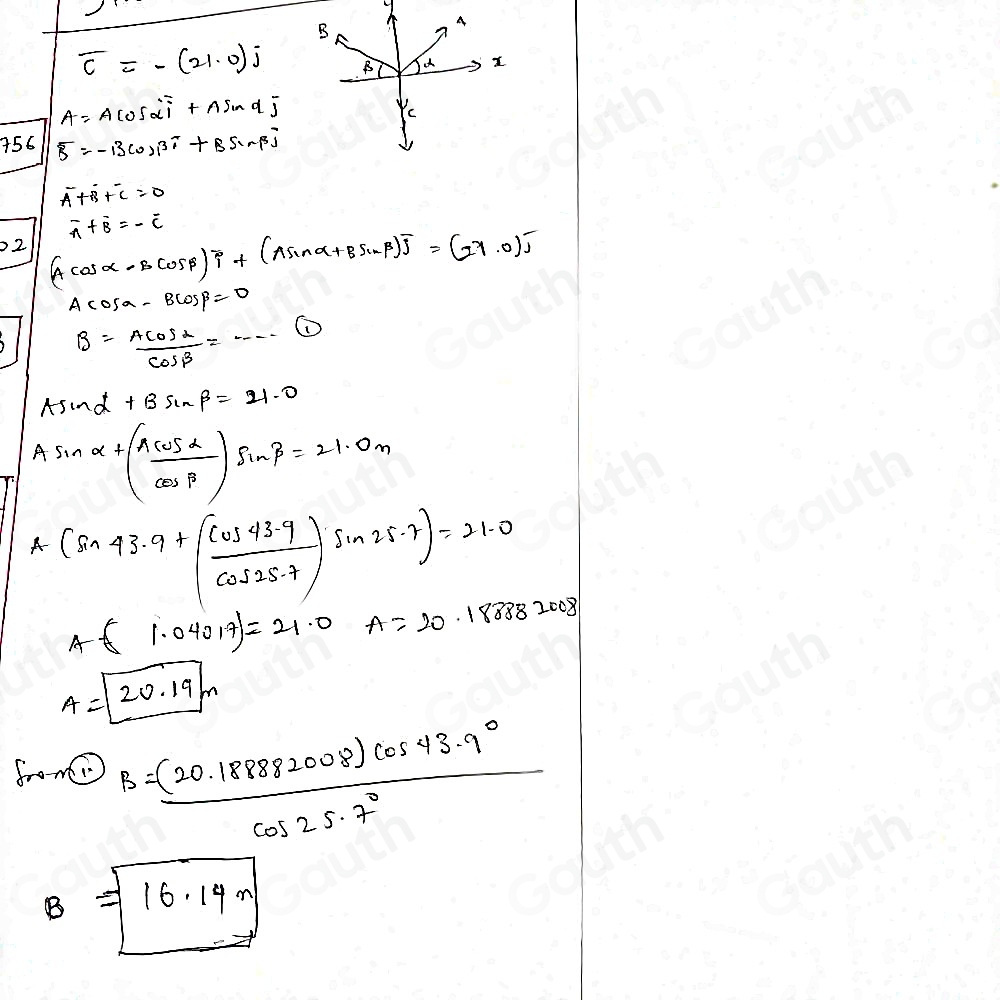 y
B
A
β
α
x
C
C̄ = - (21.0) j̄
A = A cosα ī + A sin α j̄
756
B̄ = -B cosβ ī + B sinβ j̄
Ā + B̄ + C̄ = 0
Ā + B̄ = - C̄
02
(A cosα - B cosβ) ī + (A sinα + B sinβ) j̄ = (21.0) j̄
A cosα - B cosβ = 0
B = A cosα / cosβ = ---- ①
A sinα + B sin β = 21.0
A sin α + (A cosα / cos β) sinβ = 21.0m
A (sin 43.9 + (cos 43.9 / cos 25.7) sin 25.7) = 21.0
A ( 1.04017) = 21.0 A = 20.188882008
A = 20.19 m
from ①. B = (20.188882008) cos 43.9° / cos 25.7°
B = 16.14 m
Gauth